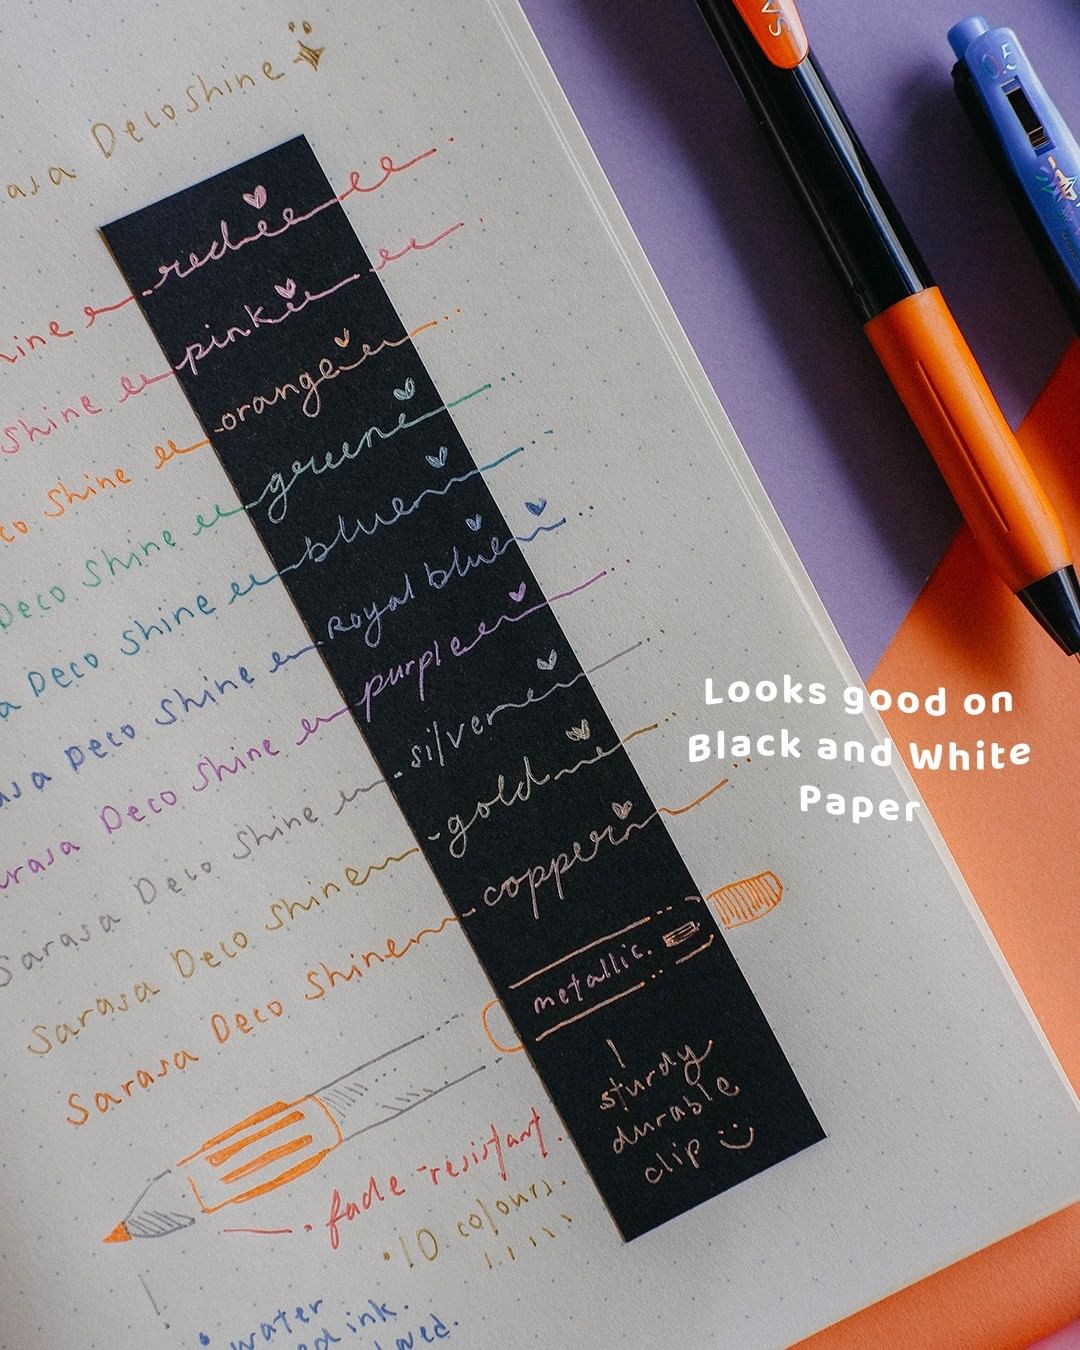 Deco Shine
red
pink
Shine
orange
Shine
green
Deco Shine
blue
Deco Shine
Royal blue
Deco Shine
purple
Deco Shine
silver
Sarasa Deco Shine
gold
Sarasa Deco Shine
copper
Sarasa Deco Shine
metallic.
sturdy
durable
clip
fade-resistant.
• 10 colours.
• water
ink.
Looks good on
Black and White
Paper
0.5